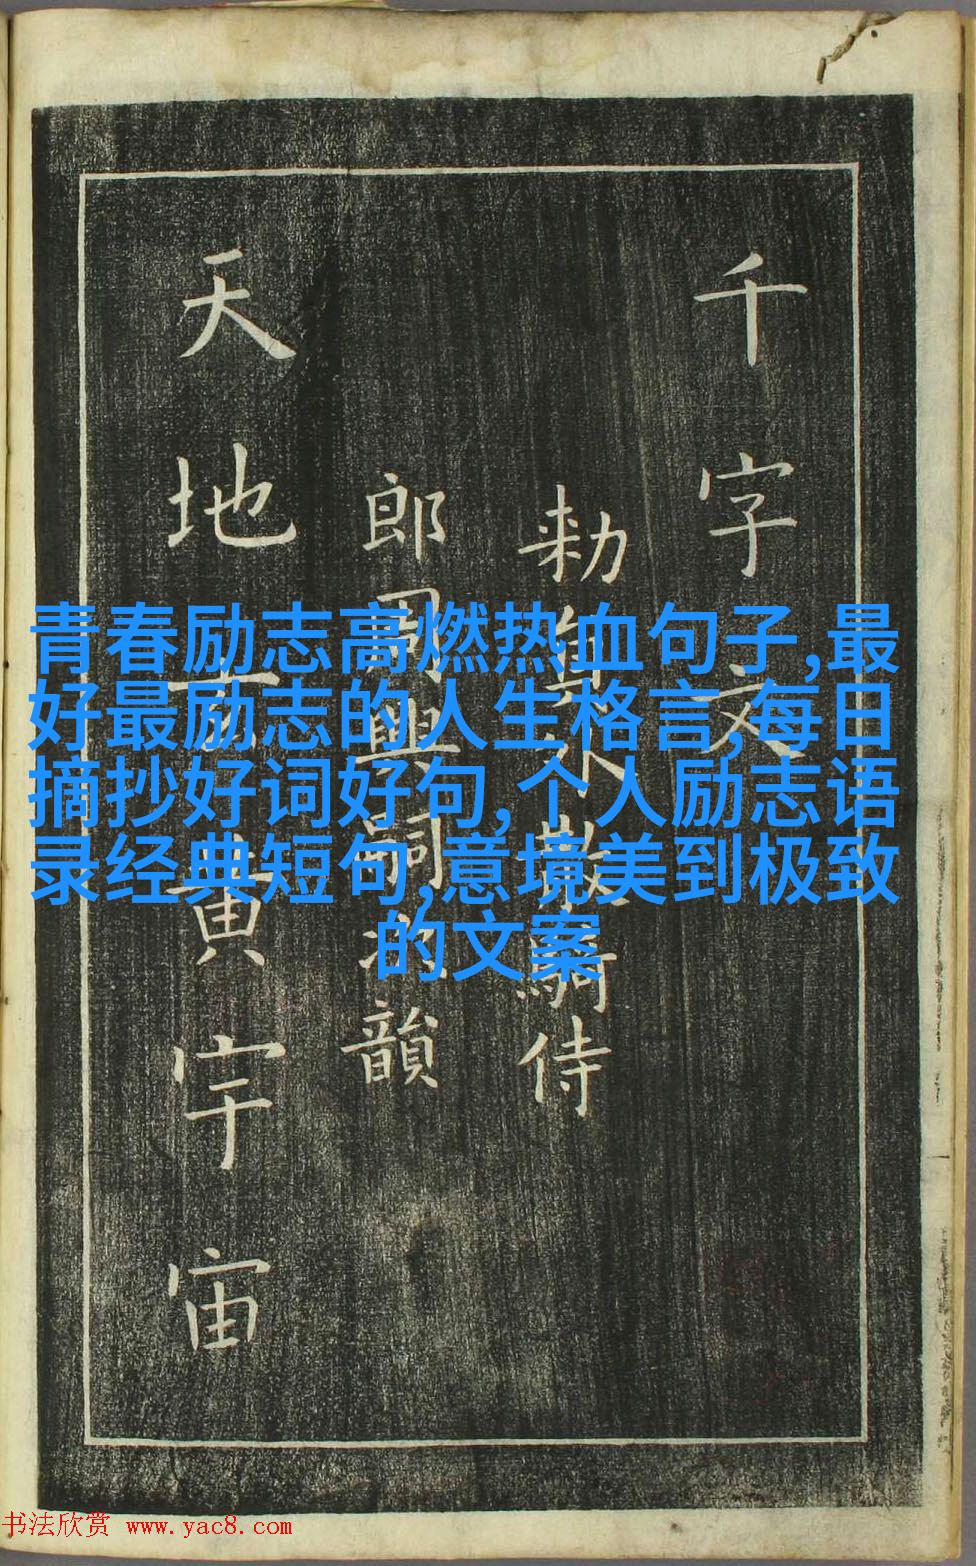 千字文
勑員外散騎侍
郎周興嗣次韻
天地玄黃宇宙
青春励志高燃热血句子,最
好最励志的人生格言,每日
摘抄好词好句,个人励志语
录经典短句,意境美到极致
的文案
书法欣赏 www.yac8.com